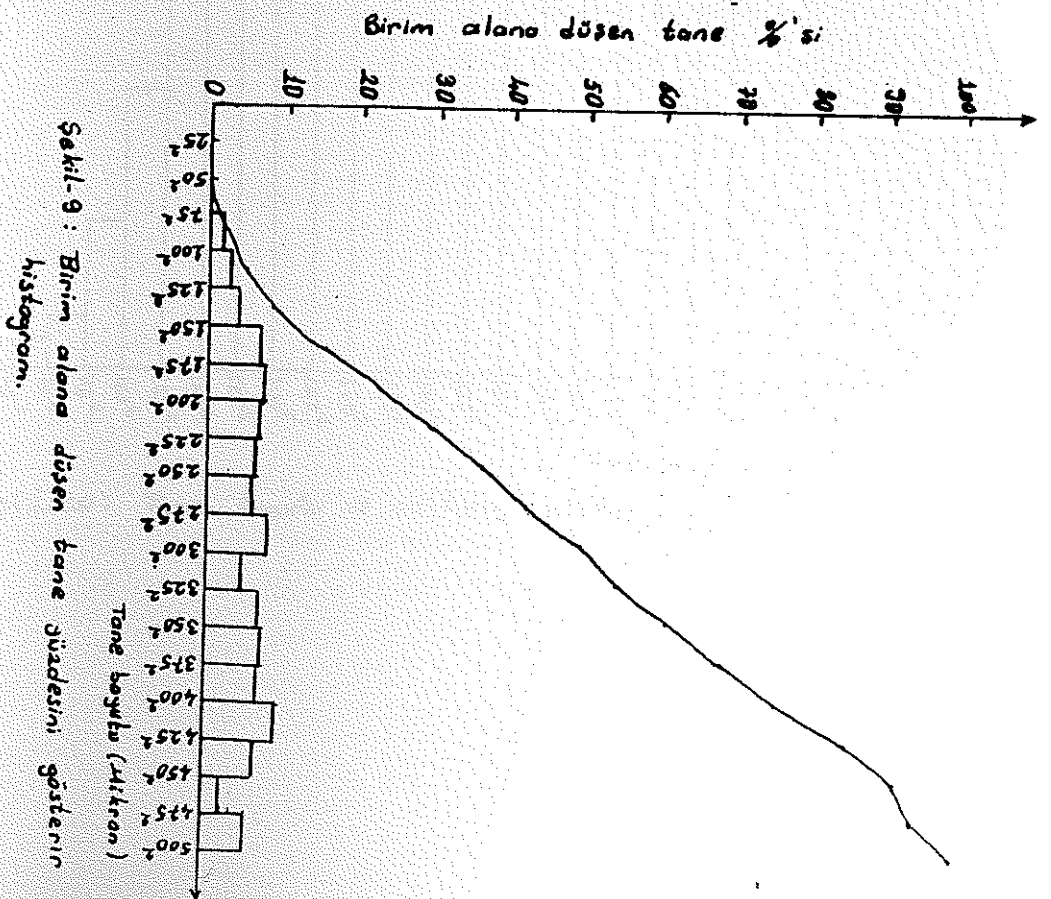 Birim alana düşen tane %'si
100
90
80
70
60
50
40
30
20
10
0
25²
50²
75²
100²
125²
150²
175²
200²
225²
250²
275²
300²
325²
350²
375²
400²
425²
450²
475²
500²
Tane boyutu (Mikron)
Şekil-9: Birim alana düşen tane yüzdesini gösterir
histogram.